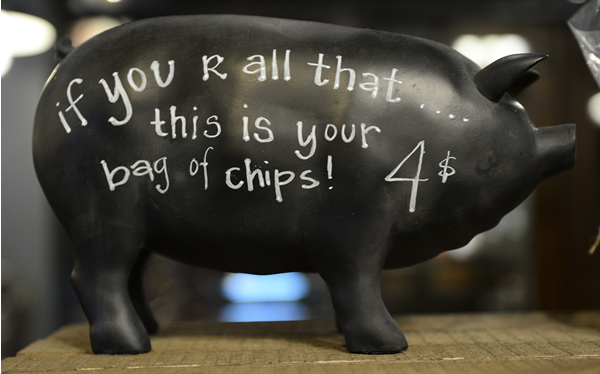 if you R all that ....
this is your
bag of chips! 4$